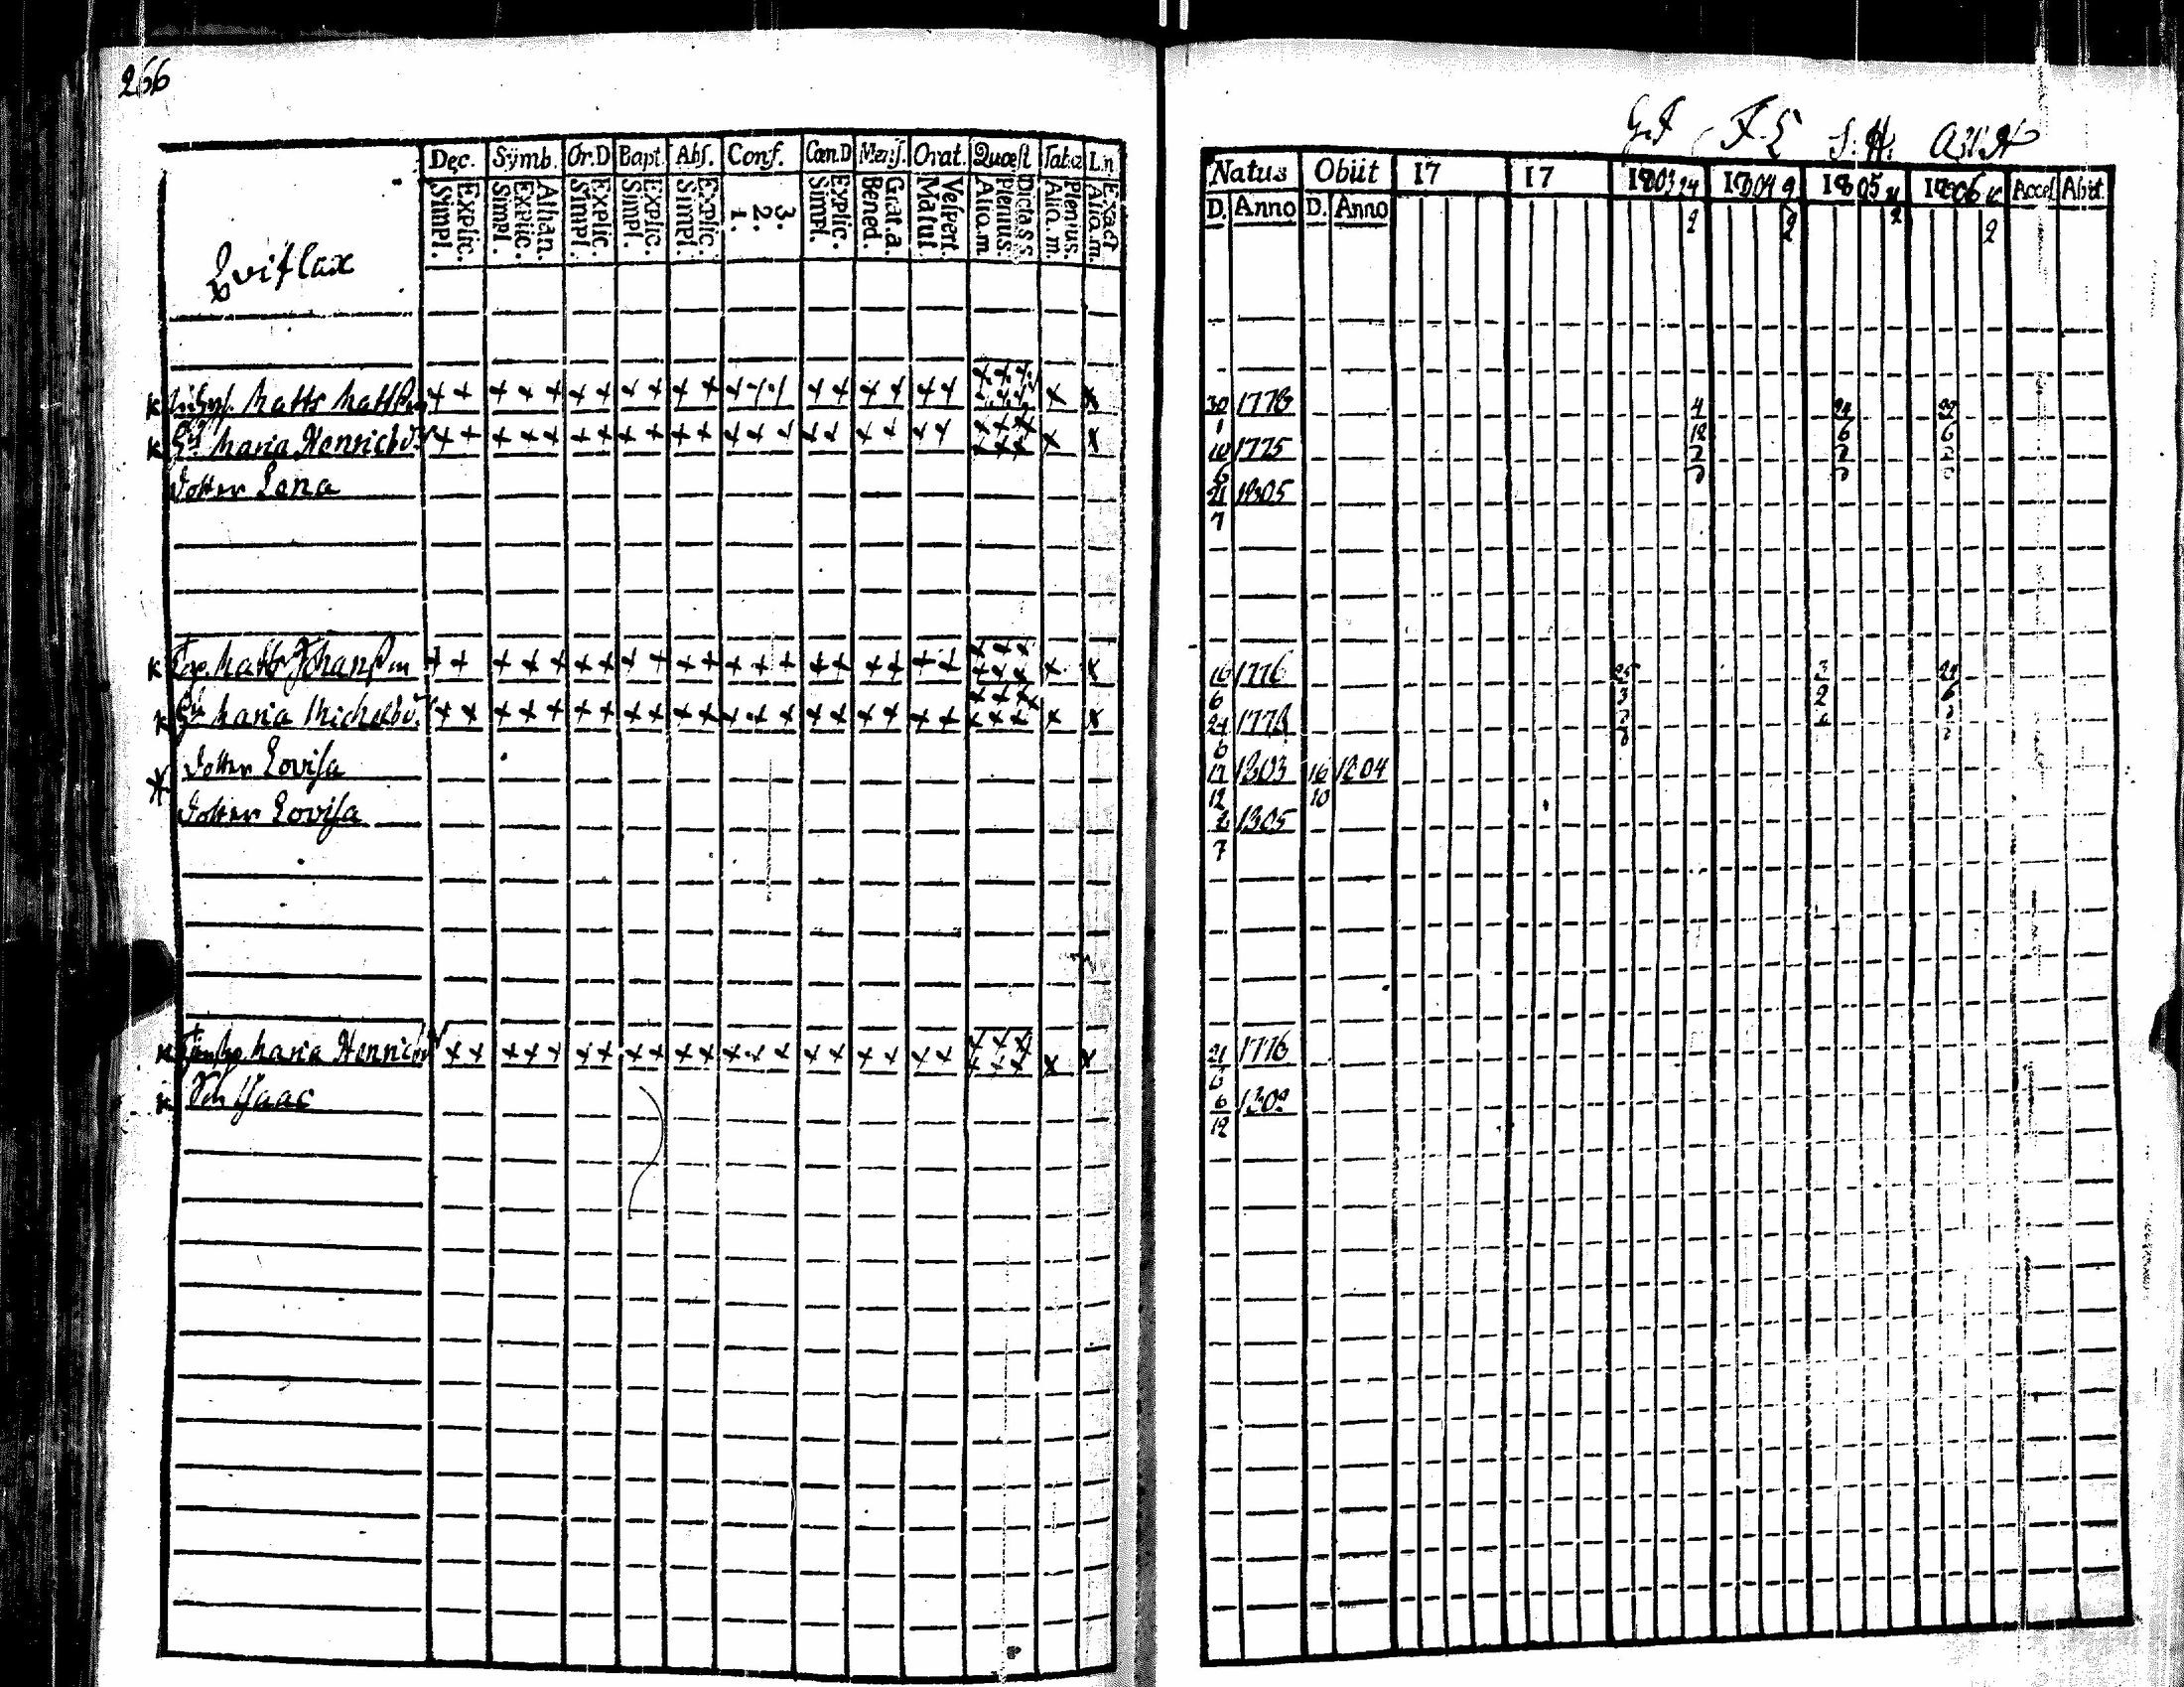 266
G.I F.L S.H. A.U.H
Dec. Symb. Or.D Bapt. Abs. Conf. Cœn.D Mens. Orat. Quæst Tab.œ L.n
Explic. Simpl. Athan. Explic. Simpl. Explic. Simpl. Explic. Simpl. Explic. Simpl. 3. 2. 1. Explic. Simpl. Grat.a. Bened. Vespert. Matut Dicta s s. Plenius. Aliq.m. Plenius. Aliq.m. Exact Aliq.m.
Natus Obiit 17 17 1803 24 1804 9 1805 1806 Acces Abiit.
D. Anno D. Anno 2 2 2 2
Qviflax
K Matts Mattss 30 1778 4
1 12 6 6
K Hu Maria Henrichsd. 10 1775
6
Dotter Lena 21 1805
7
K Matts Johansson 16 1776 25 3 24
6 3 2 6
K Hu Maria Michelsd. 24 1778
6
Dotter Lovisa 17 1803 16 1804
12 10
Dotter Lovisa 2 1805
7
K Maria Henrichsd 21 1776
6
K Son Isaac 6 1802
12